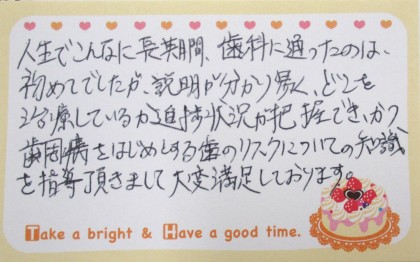 人生でこんなに長期間、歯科に通ったのは、
初めてでしたが、説明が分かり易く、どこを
治療しているか進捗状況が把握でき、かつ
歯周病をはじめとする歯のリスクについての知識
を指導頂きまして大変満足しております。
Take a bright & Have a good time.